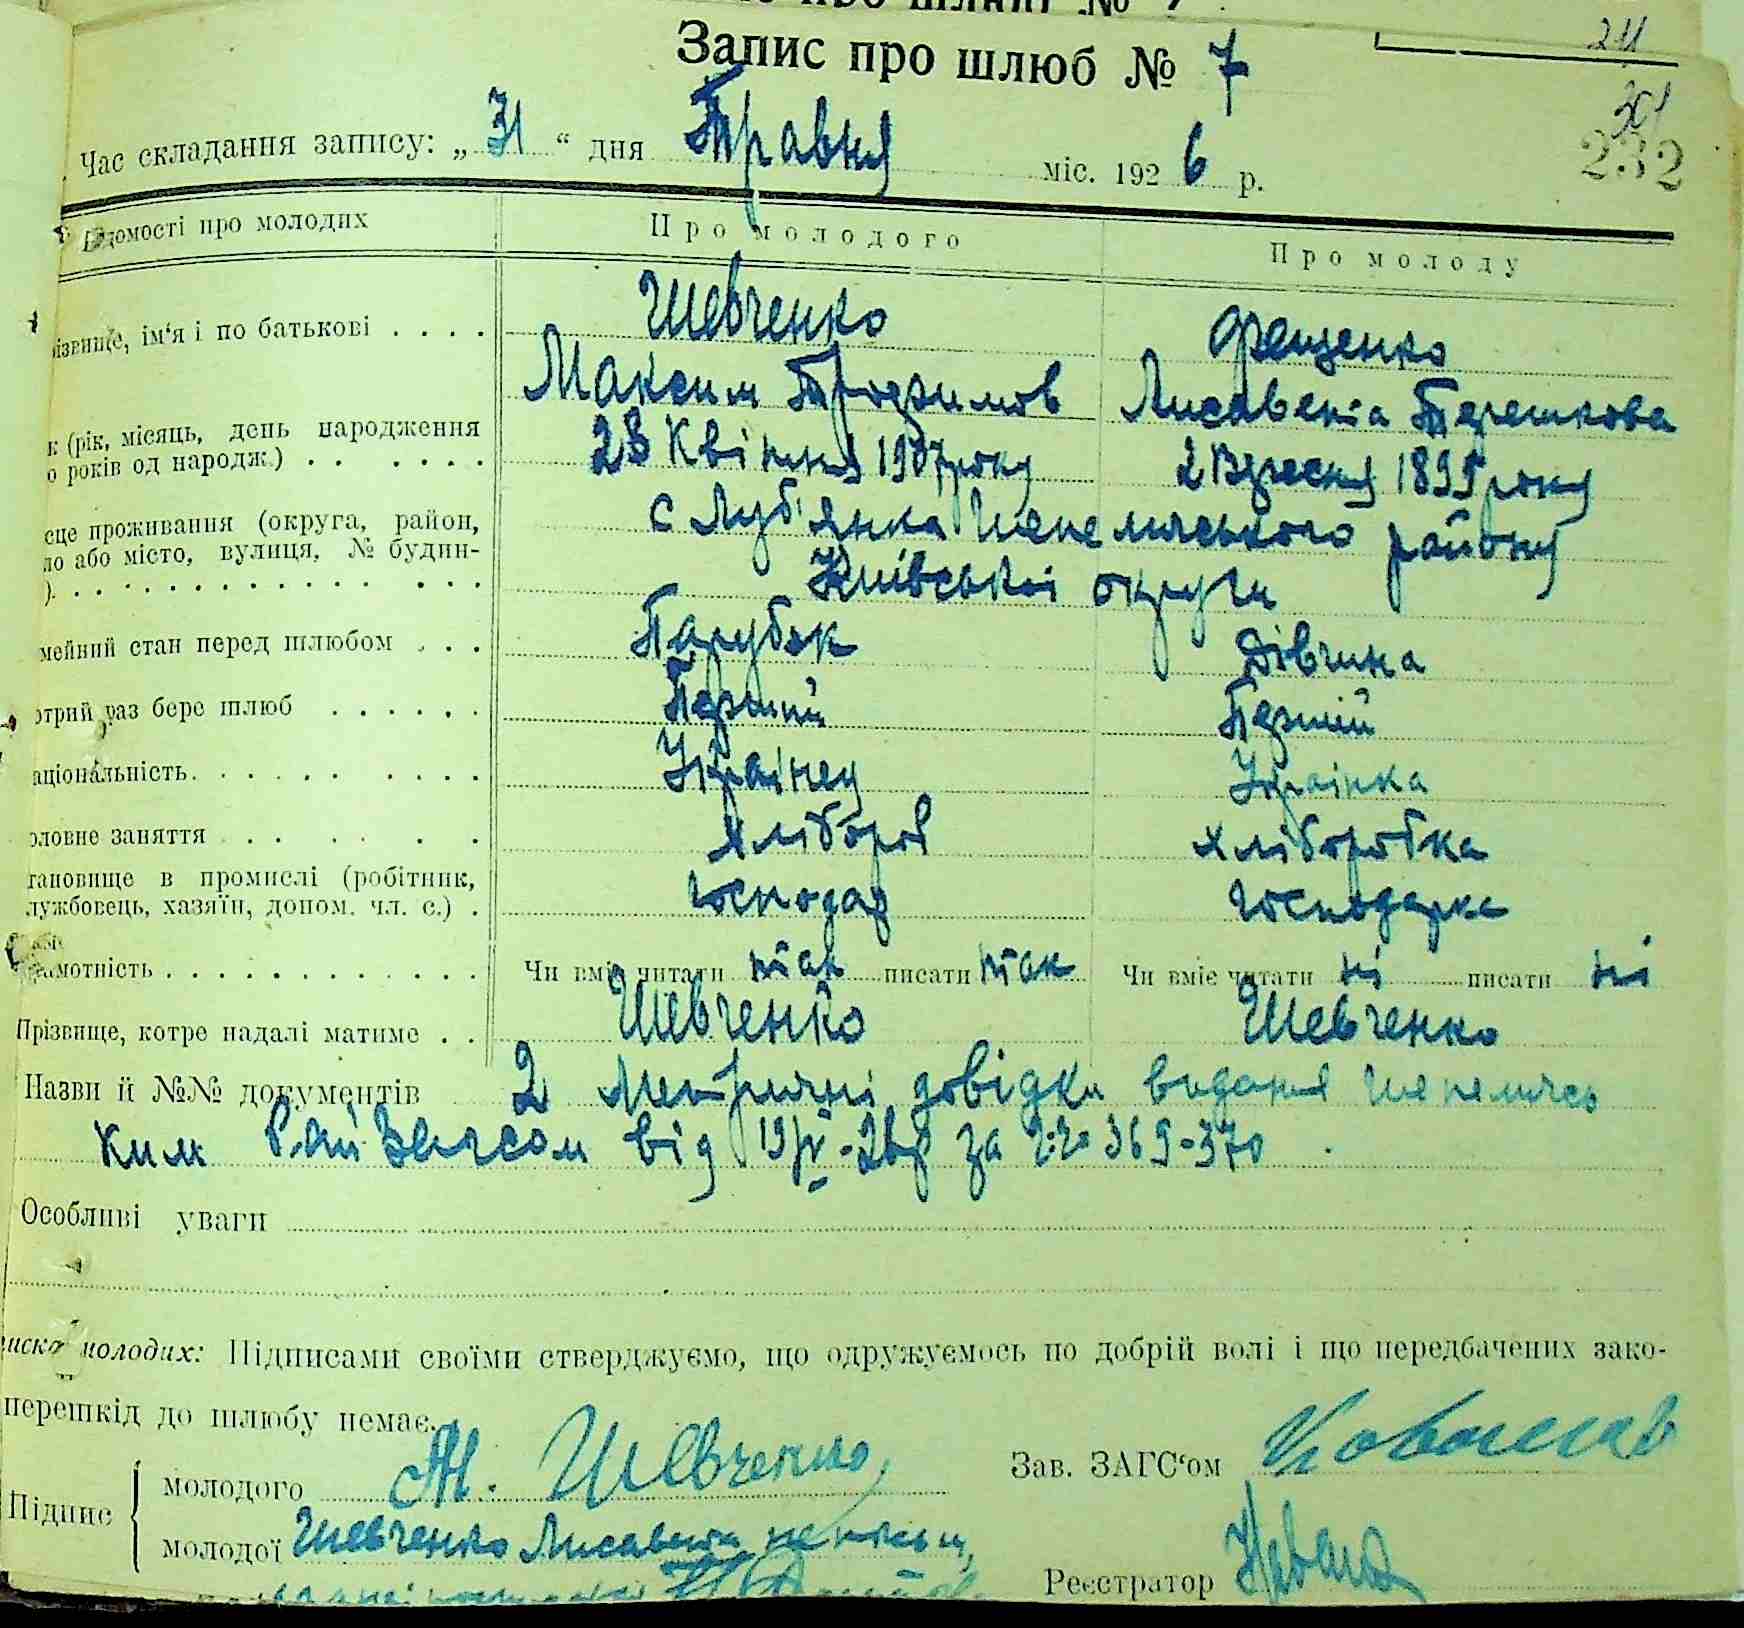 Запис про шлюб № 7
24
Час складання запису: „ 31 “ дня Травня міс. 1926 р.
232
Відомості про молодих
Про молодого
Про молоду
ізвище, ім'я і по батькові . . . .
Шевченко
Фещенко
Максим Трохимов
Лисавета Терешкова
к (рік, місяць, день народження
о років од народж.) . . . . . .
23 Квітня 1907 року
2 Вересня 1899 року
сце проживання (округа, район,
ло або місто, вулиця, № будин-
). . . . . . . . . . . . . . . .
с Луб'янка Шепелицького району
Київської округи
мейний стан перед шлюбом . . .
Парубок
Дівчина
отрий раз бере шлюб . . . . . .
Перший
Перший
аціональність. . . . . . . . . .
Українец
Українка
оловне заняття . . . . . .
Хлібороб
Хліборобка
тановище в промислі (робітник,
лужбовець, хазяїн, допом. чл. с.) .
Господар
Господарка
амотність . . . . . . . . . . . . .
Чи вміє читати так писати так
Чи вміє читати ні писати ні
Прізвище, котре надалі матиме . .
Шевченко
Шевченко
Назви й №№ документів 2 Метричні довідки видания Шепелицьс
ким РайЗагсом від 19/IV-26р за 369-370
Особливі уваги
иска молодих: Підписами своїми стверджуємо, що одружуємось по добрій волі і що передбачених зако-
перешкід до шлюбу немає.
Підпис
молодого М. Шевченко
Зав. ЗАГС'ом
молодої Шевченко Лисавета
Реєстратор